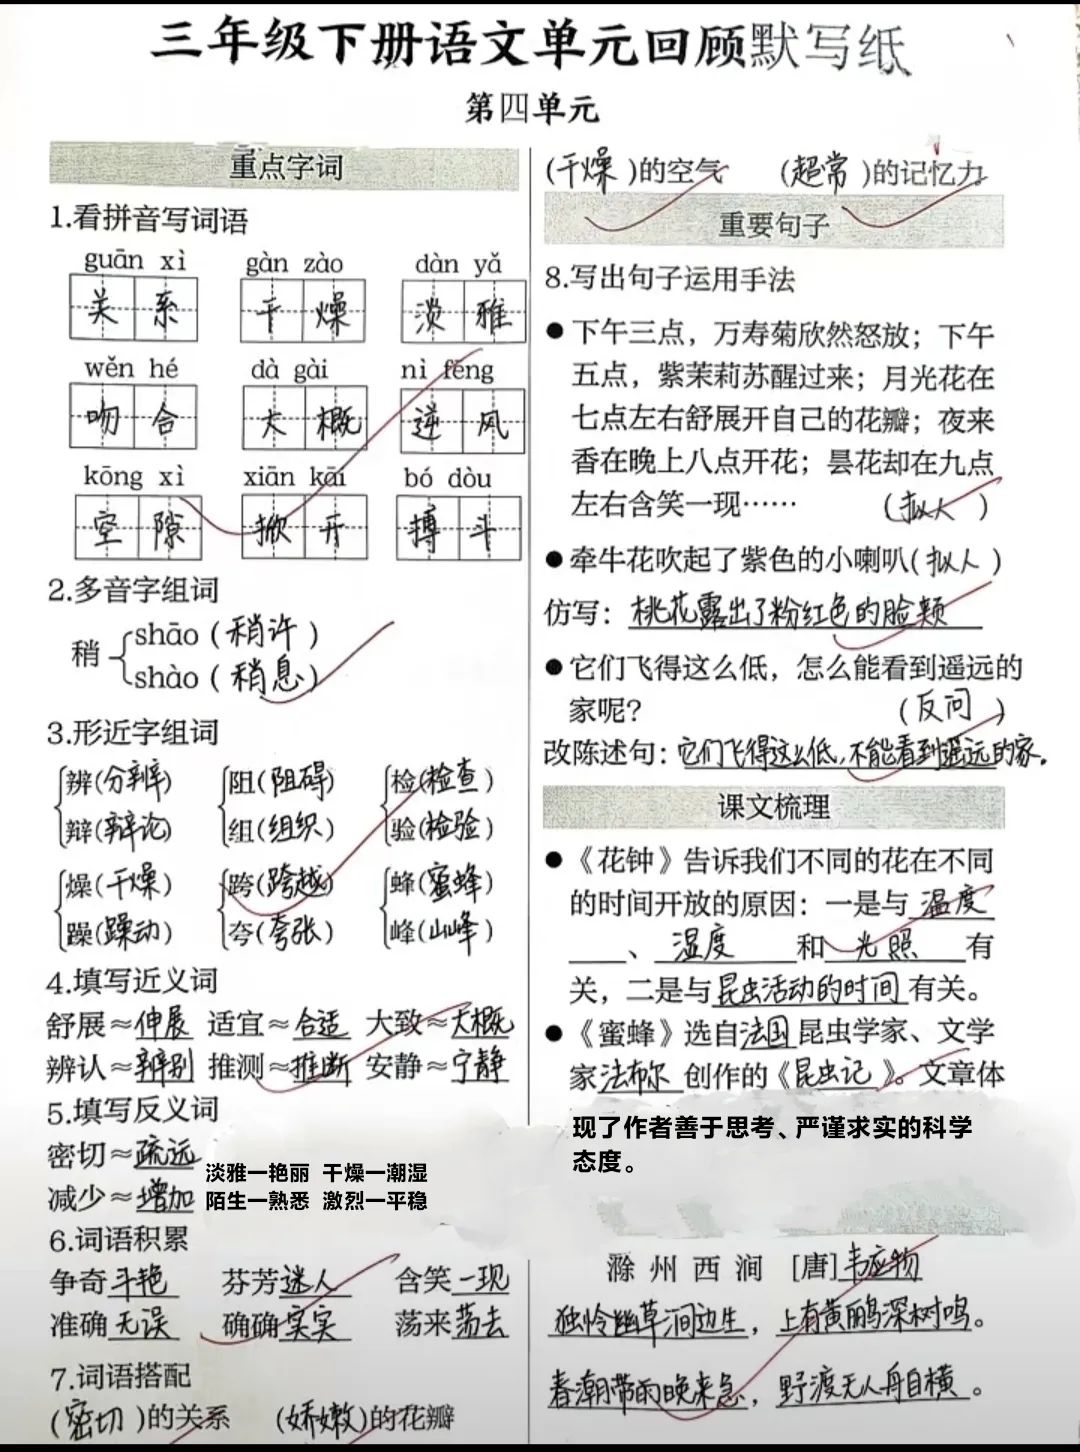 三年级下册语文单元回顾默写纸
第四单元
重点字词
1.看拼音写词语
guān xì gàn zào dàn yǎ
关系 干燥 淡雅
wěn hé dà gài nì fēng
吻合 大概 逆风
kōng xì xiān kāi bó dòu
空隙 掀开 搏斗
2.多音字组词
稍 shāo(稍许)
shào(稍息)
3.形近字组词
辨(分辨) 阻(阻碍) 检(检查)
辩(辩论) 组(组织) 验(检验)
燥(干燥) 跨(跨越) 蜂(蜜蜂)
躁(躁动) 夸(夸张) 峰(山峰)
4.填写近义词
舒展≈伸展 适宜≈合适 大致≈大概
辨认≈辨别 推测≈推断 安静≈宁静
5.填写反义词
密切≈疏远
减少≈增加
淡雅一艳丽 干燥一潮湿
陌生一熟悉 激烈一平稳
6.词语积累
争奇斗艳 芬芳迷人 含笑一现
准确无误 确确实实 荡来荡去
7.词语搭配
(密切)的关系 (娇嫩)的花瓣
(干燥)的空气 (超常)的记忆力
重要句子
8.写出句子运用手法
●下午三点，万寿菊欣然怒放；下午
五点，紫茉莉苏醒过来；月光花在
七点左右舒展开自己的花瓣；夜来
香在晚上八点开花；昙花却在九点
左右含笑一现……(拟人)
●牵牛花吹起了紫色的小喇叭(拟人)
仿写：桃花露出了粉红色的脸颊
●它们飞得这么低，怎么能看到遥远的
家呢？(反问)
改陈述句：它们飞得这么低，不能看到遥远的家。
课文梳理
●《花钟》告诉我们不同的花在不同
的时间开放的原因：一是与温度
、湿度和光照有
关，二是与昆虫活动的时间有关。
●《蜜蜂》选自法国昆虫学家、文学
家法布尔创作的《昆虫记》。文章体
现了作者善于思考、严谨求实的科学
态度。
滁州西涧 [唐]韦应物
独怜幽草涧边生，上有黄鹂深树鸣。
春潮带雨晚来急，野渡无人舟自横。